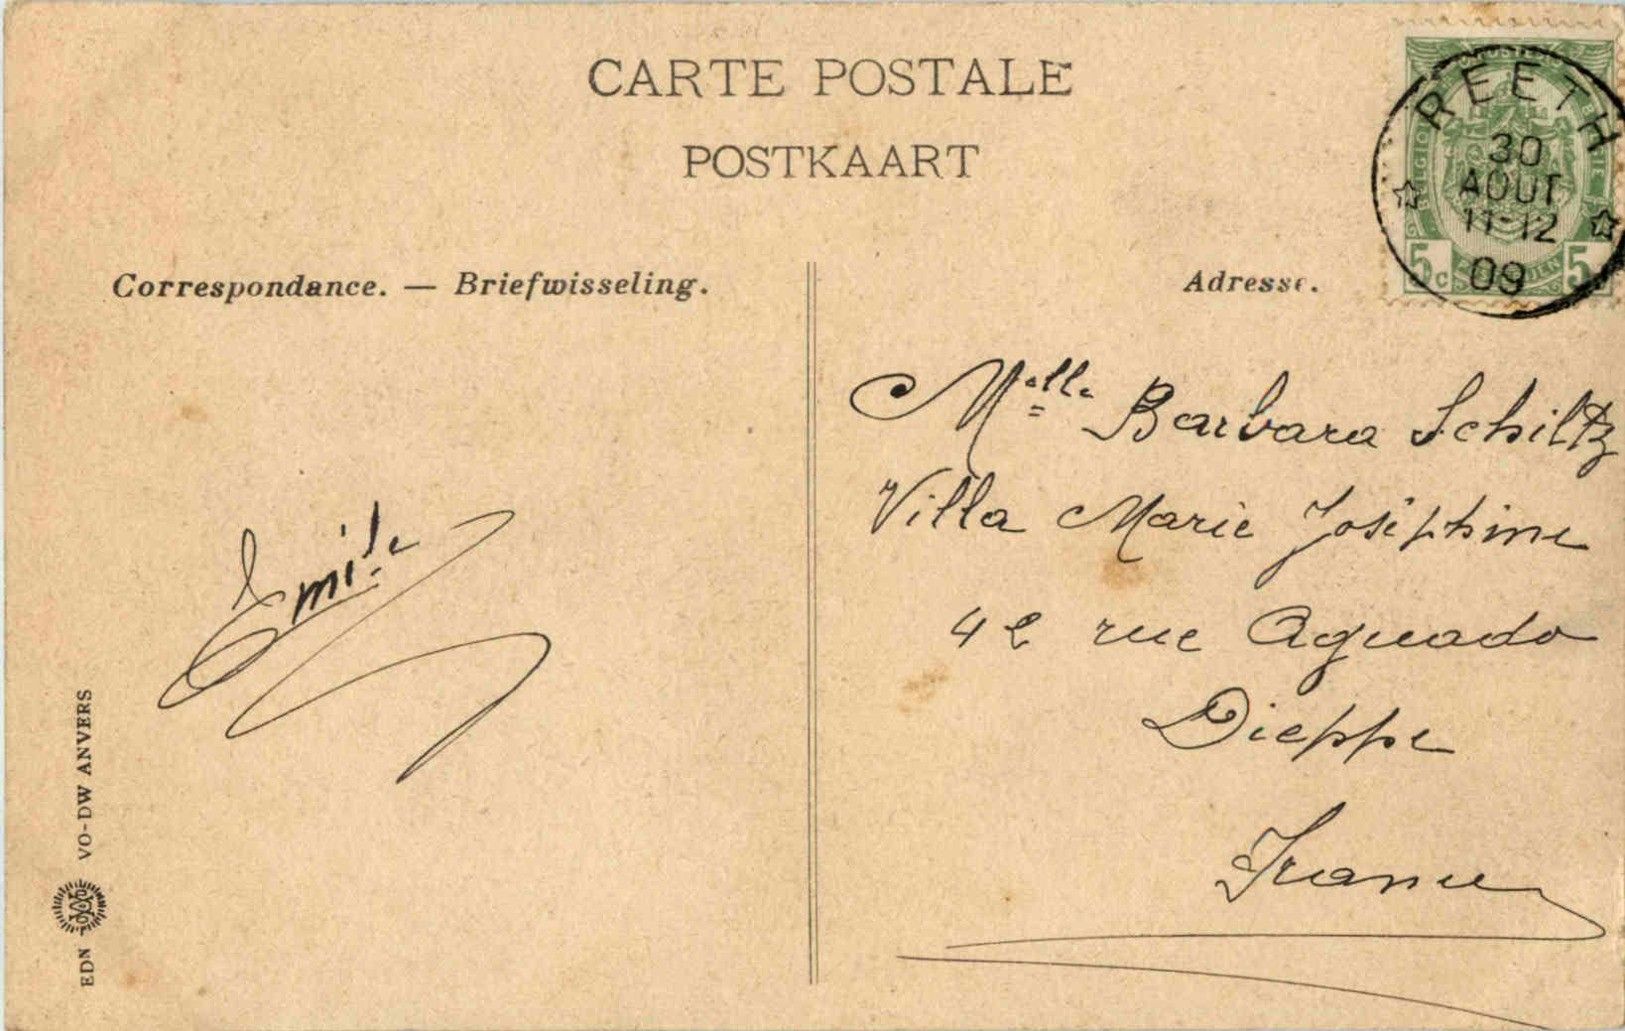 CARTE POSTALE
POSTKAART
Correspondance. — Briefwisseling.
Adresse.
REETH
30
AOUT
11-12
09
BELGIQUE BELGIE
5c 5c
Melle Barbara Schiltz
Villa Marie Joséphine
42 rue Aguado
Dieppe
France
Emile
EDN VO-DW ANVERS